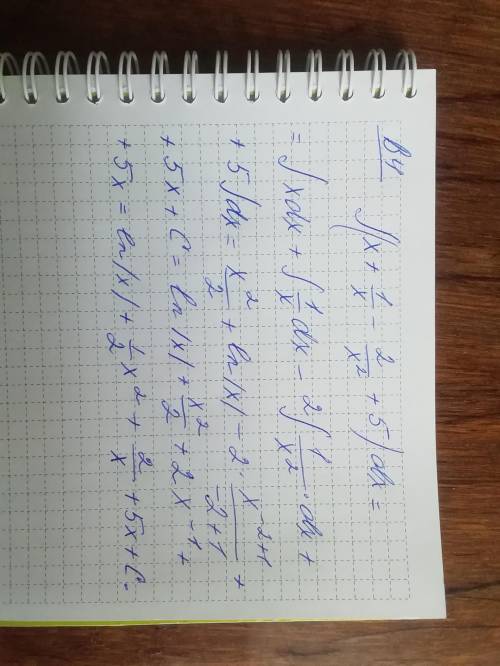 В4
∫(x + 1/x - 2/x² + 5)dx =
= ∫xdx + ∫1/x dx - 2∫1/x² · dx +
+ 5∫dx = x²/2 + ln|x| - 2 · x⁻²⁺¹/-2+1 +
+ 5x + C = ln|x| + x²/2 + 2x⁻¹ +
+ 5x = ln|x| + 1/2 x² + 2/x + 5x + C.